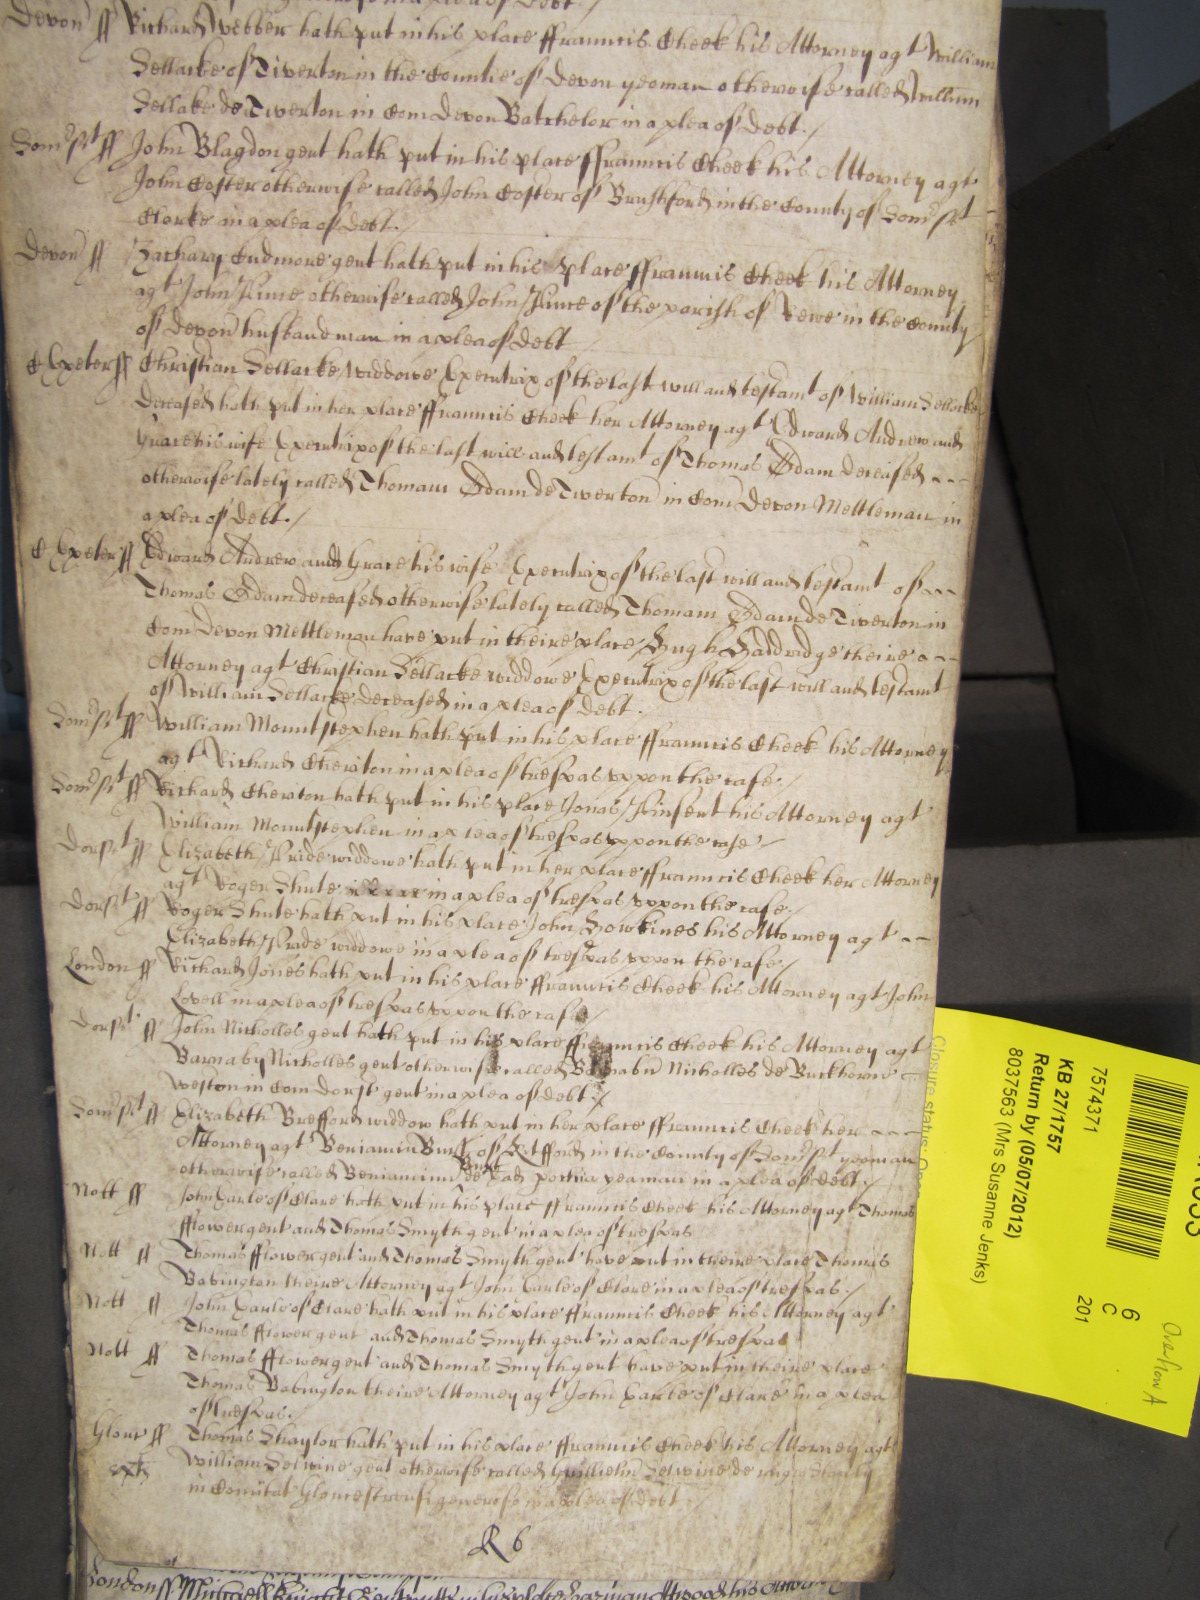 Devon ss Richard Webber hath put in his place ffrauncis Cheek his Attorney agt William
Sellacke of Tiverton in the Countie of Devon yeoman otherwise called Willum
Sellake de Tiverton in Com Devon Batchelor in a plea of Debt./
Somst ss John Blagdon gent hath put in his place ffrauncis Cheek his Attorney agt
John Coster otherwise called John Coster of Brushford in the County of Somst
Clarke in a plea of Debt./
Devon ss Zachary Cudmore gent hath put in his place ffrauncis Cheek his Attorney
agt John otherwise called John of the parish of Rewe in the County
of Devon husbandman in a plea of Debt
Exeter ss Christian Sellacke widdowe Executrix of the last will and testamt of William Sellacke
deceased hath put in her place ffrauncis Cheek her Attorney agt Edward Andrew and
Grace his wife Executrix of the last will and testamt of Thomas Adam deceased
otherwise lately called Thomam Adam de Tiverton in Com Devon Mettleman in
a plea of Debt./
Exeter ss Edward Andrew and Grace his wife Executrix of the last will and testamt of
Thomas Adam deceased otherwise lately called Thomam Adam de Tiverton in
Com Devon Mettleman have put in theire place Hugh theire
Attorney agt Christian Sellacke widdowe Executrix of the last will and testamt
of William Sellacke deceased in a plea of Debt.
Somst ss William Mountstephen hath put in his place ffrauncis Cheek his Attorney
agt Richard Cheriton in a plea of trespas uppon the case./
Somst ss Richard Cheriton hath put in his place Jonas Pinsent his Attorney agt
William Mountstephen in a plea of trespas uppon the case./
Dorst ss Elizabeth Pride widdowe hath put in her place ffrauncis Cheek her Attorney
agt Roger Shute in a plea of trespas uppon the case./
Dorst ss Roger Shute hath put in his place John Howkines his Attorney agt
Elizabeth Pride widdowe in a plea of trespas uppon the case/
London ss Richard Jones hath put in his place ffrauncis Cheek his Attorney agt John
Lovell in a plea of trespas uppon the case/
Dorst ss John Nicholles gent hath put in his place ffrauncis Cheek his Attorney agt
Barnaby Nicholles gent otherwise called Barnabu Nicholles de Buckhorne
weston in Com Dorst gent in a plea of debt./
Somst ss Elizabeth Brefford widdow hath put in her place ffrauncis Cheek her
Attorney agt Beniamin of in the County of Somst yeoman
otherwise called Beniaminu de yeoman in a plea of debt./
Nott ss John Earle of Clare hath put in his place ffrauncis Cheek his Attorney agt Thomas
fflower gent and Thomas Smyth gent in a plea of trespas
Nott ss Thomas fflower gent and Thomas Smyth gent have put in theire place Thomas
Babington theire Attorney agt John Earle of Clare in a plea of trespas./
Nott ss John Earle of Clare hath put in his place ffrauncis Cheek his Attorney agt
Thomas fflower gent and Thomas Smyth gent in a plea of trespas
Nott ss Thomas fflower gent and Thomas Smyth gent have put in theire place
Thomas Babington theire Attorney agt John Earle of Clare in a plea
of trespas.
Glouc ss Thomas Shaylor hath put in his place ffrauncis Cheek his Attorney agt
William Selwine gent otherwise called Guillielm Selwine de Stanly
in Comitat generoso in a plea of debt
R 6
London ss Michaell Knight his Attorney
7574371
KB 27/1757
Return by (05/07/2012)
8037563 (Mrs Susanne Jenks)
Closure status:
6
C
201
Overflow A